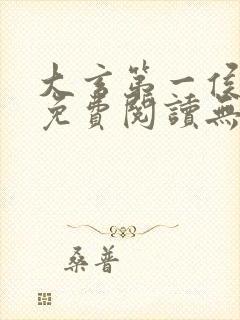 大言第一侯
免費閱讀無
桑普